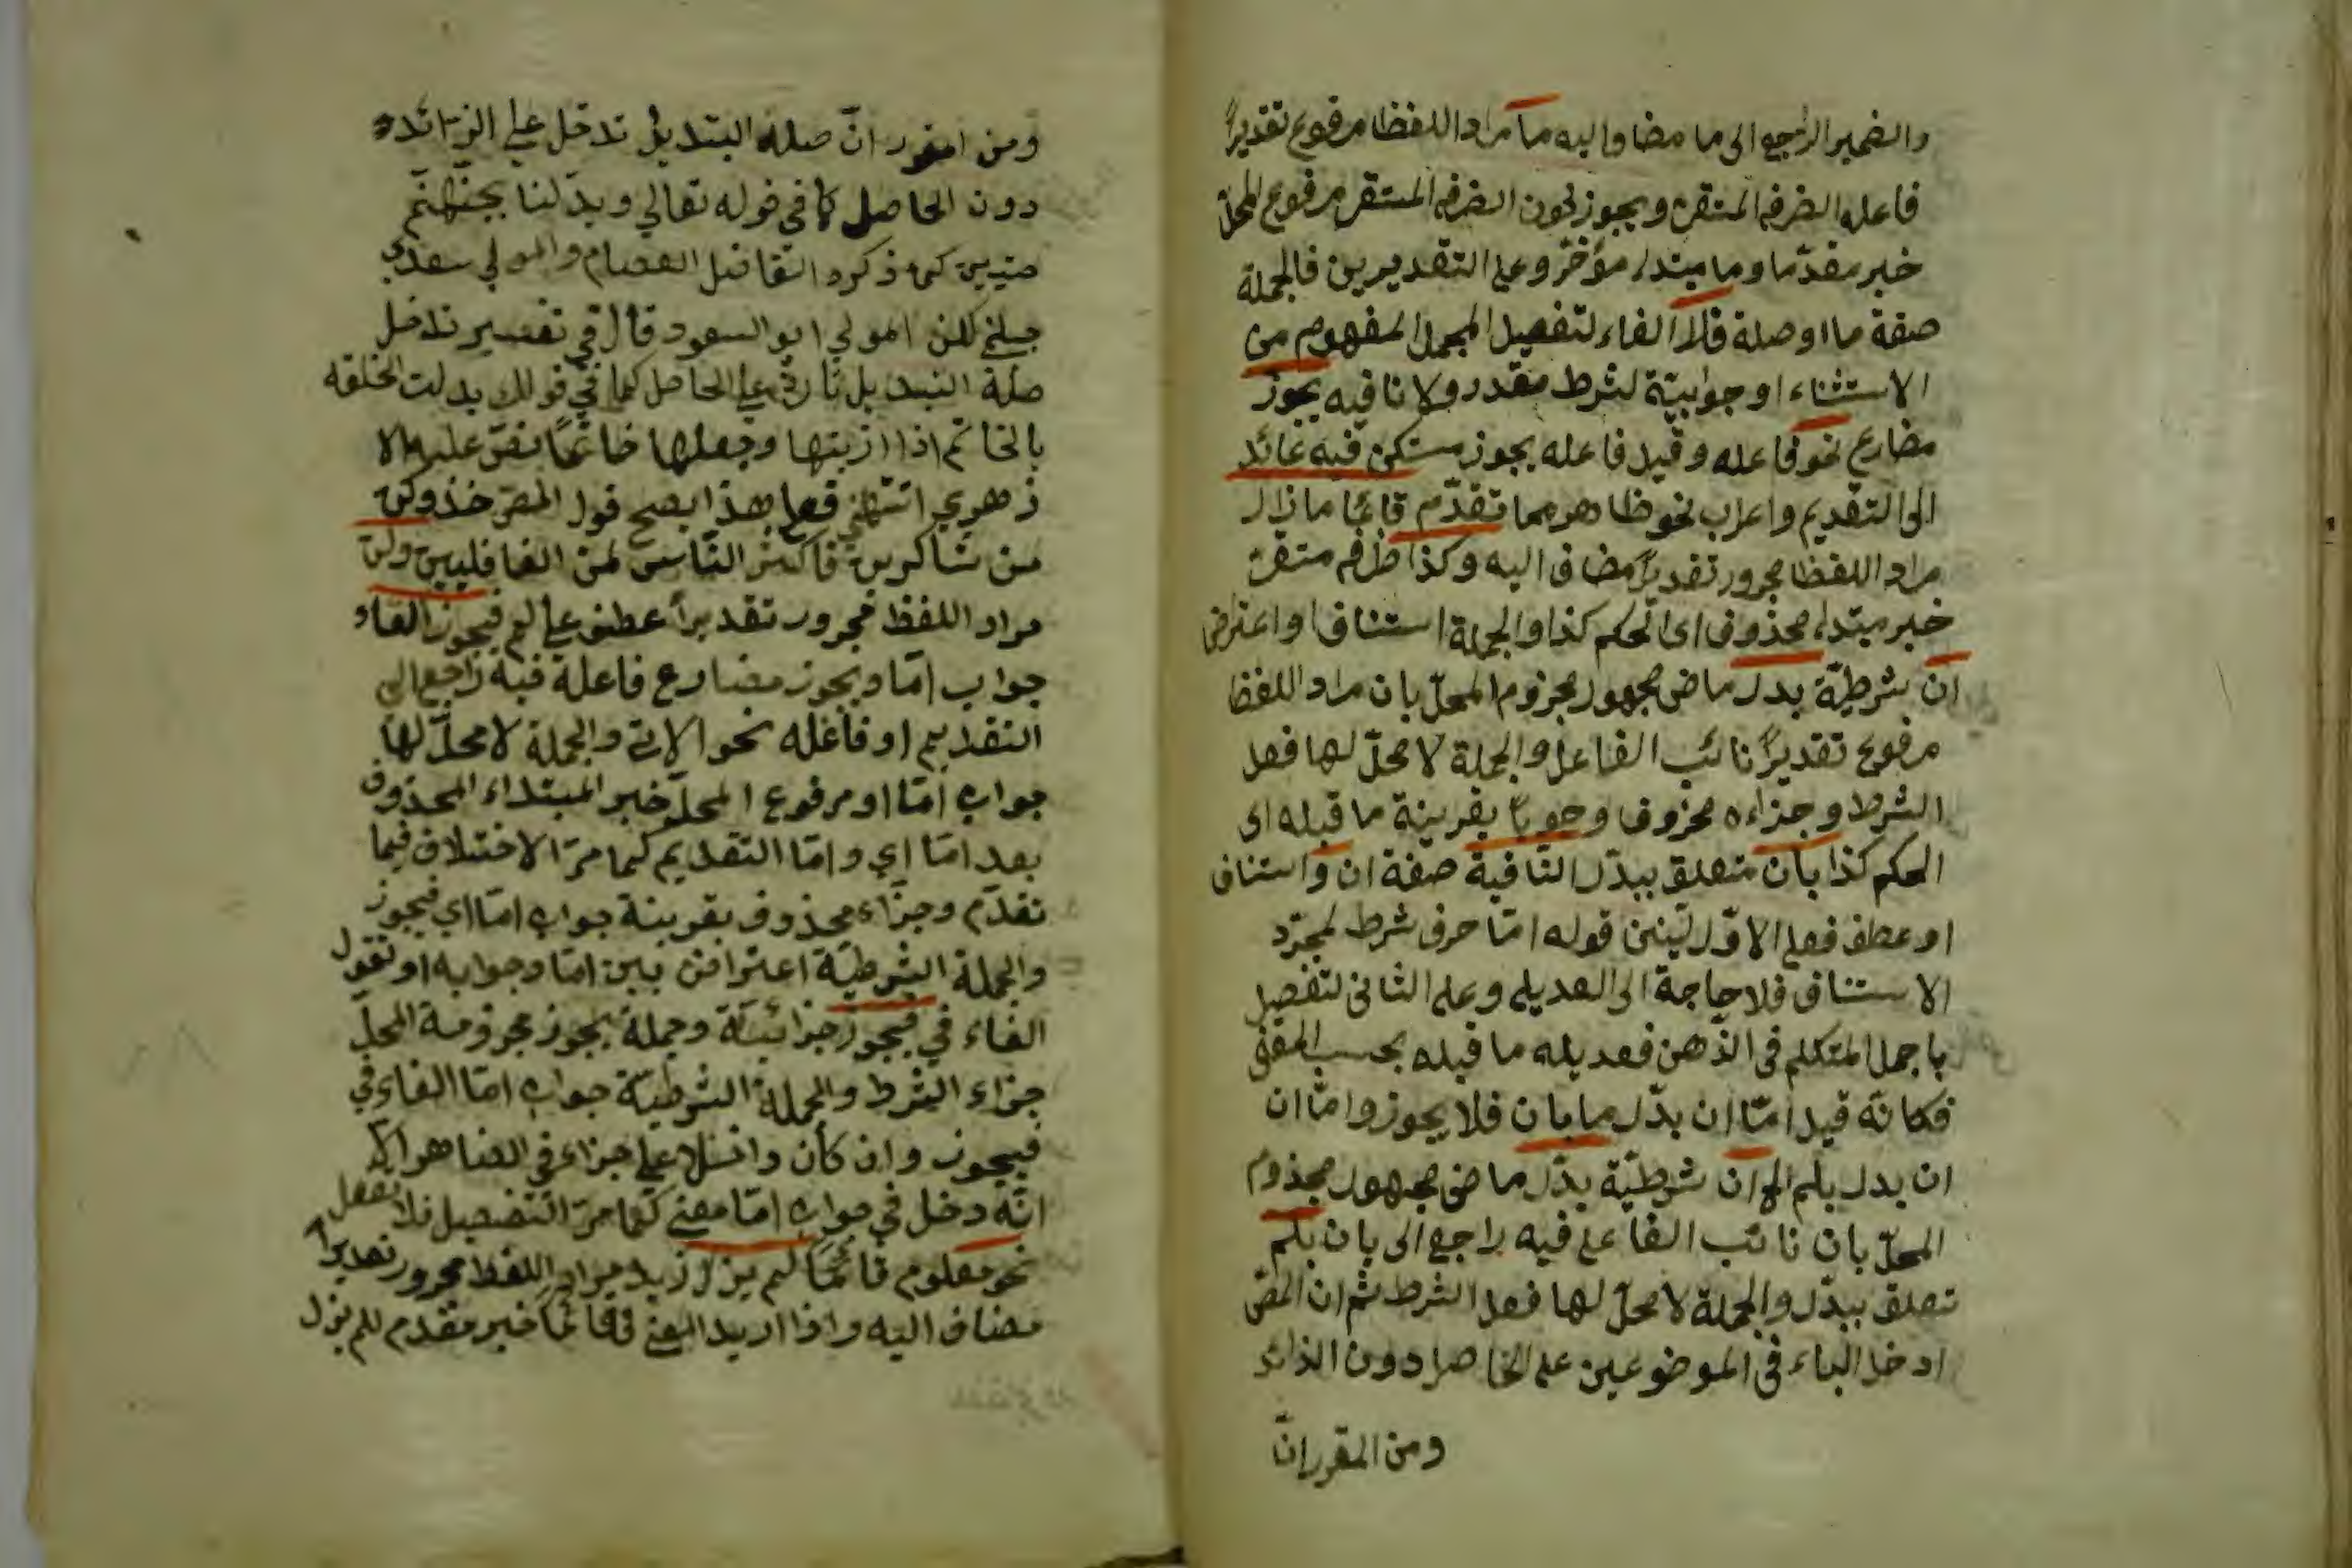 والضمير الراجع الى ما مضاف اليه ما مراد اللفظ مرفوع تقديرًا
فاعله الظرف المستقر ويجوز كون الظرف المستقر مرفوع المحلّ
خبر مقدّما وما مبتداء مؤخّر وعلى التقديرين فالجملة
صفة ما او صلة فلا الفاء لتفصيل المجمل المفهوم من
الاستثناء او جوابيّة لشرط مقدر ولا نافيه يجوز
مضارع نحو فاعله وقيل فاعله يجوز مستكن فيه عائد
الى التقديم واعراب نحو ظاهر مما تقدّم قائما ما زال
مراد اللفظ مجرور تقديرًا مضاف اليه وكذا ظرف مستقر
خبر مبتداء محذوف اى الحكم كذا والجملة استئناف او اعتراض
ان شرطيّة بدل ماض مجهول مجزوم المحلّ بان مراد اللفظ
مرفوع تقديرًا نائب الفاعل والجملة لا محلّ لها فعل
الشرط وجزاءه محذوف وجوبًا بقرينة ما قبله اى
الحكم كذا بان متعلق ببدّل النافية صفة ان واستئناف
او عطف فعلى الاوّل لتبنى قوله امّا حرف شرط لمجرّد
الاستئناف فلا حاجة الى العديل وعلى الثانى لتفصيل
ما جمل المتكلم فى الذّهن فعديله ما قبله بحسب المعنى
فكانّه قيل امّا ان بدّل ما بان فلا يجوز وامّا ان
ان بدل بلم الخ ان شرطيّة بدّل ماض مجهول مجذوم
المحلّ بان نائب الفاعل فيه راجع الى بان بلم
تعلق ببدّل والجملة لا محلّ لها فعل الشرط ثم ان المص
ادخل الباء فى الموضوعين على الحاصل دون الذائد
ومن المقرر انّ
ومن المقرر انّ صلة التبديل تدخل على الزائده
دون الحاصل كما في قوله تعالي وبدّلنا بجنّتهم
جنتين كما ذكره الفاضل العصام والمولي سعدي
جبلي لكن المولي ابو السعود قال في تفسير تدخل
صلة التبديل تارة على الحاصل كما في قولك بدلت الحلقه
بالخاتم اذا اذبتها وجعلها خاتمًا نصّ عليه الا
زهري انتهى فعلى هذا يصح قول المص خذ وكن
من شاكرين فاكثر النّاس لمن الغافليين ولن
مراد اللفظ مجرور تقديراً عطف علي لم فيجوز الفاء
جواب امّا ويجوز مضارع فاعلة فيه راجع الى
التقديم او فاعله نحو الاتى والجملة لا محلّ لها
جواب امّا او مرفوع المحلّ خبر المبتداء المحذوف
بعد امّا اي وامّا التقديم كما مرّ الاختلاف فيما
تقدّم وجزّاء محذوف بقرينة جواب امّا اي فيجوز
والجملة الشرطيّة اعتراض بين امّا وجوابه او تقول
الفاء في فيجوز جزائيّة وجملة يجوز مجزومة المحلّ
جزاء الشرط والجملة الشرطيّة جواب امّا الفاء في
فيجوز وان كان داخلا على جزاء في الظاهر الا
انّه دخل في جواب امّا معني كما مرّ التفصيل فلا تغفل
نحو معلوم قائمًا لم يزل زيد مراد اللفظ مجرور تقديرا
مضاف اليه واذا اريد المعنى فقائمًا خبر مقدم للم يزل